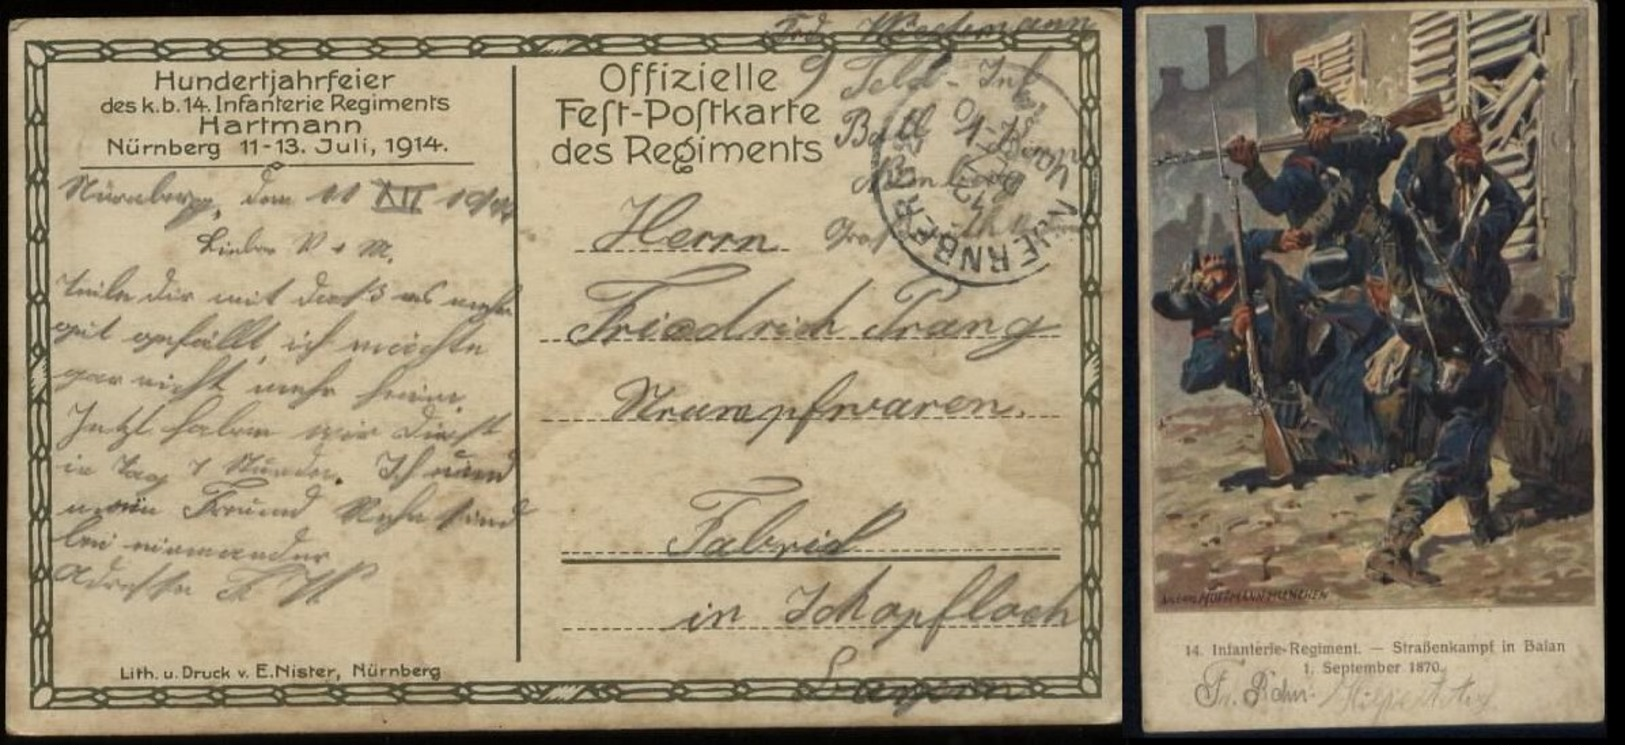 Hundertjahrfeier
des k. b. 14. Infanterie Regiments
Hartmann
Nürnberg 11-13. Juli, 1914.
Nürnberg, den 11 XII 1914
Lieber V + M.
Teile dir mit daß es mir
gut gefällt, ich möchte
gar nicht mehr heim.
Jetzt haben wir Dienst
in Tag 7 Stunden. Ich und
mein Freund sind
bei einander
Adresse
Lith. u. Druck v. E. Nister, Nürnberg
Offizielle
Feſt-Poſtkarte
des Regiments
Feld-Inf
Batl
NUERNBERG
Herrn
Friedrich Trang
Strumpfwaren.
Fabrik
in Schopfloch
Bayern
HOFFMANN MÜNCHEN
14. Infanterie-Regiment. — Straßenkampf in Balan
1. September 1870.